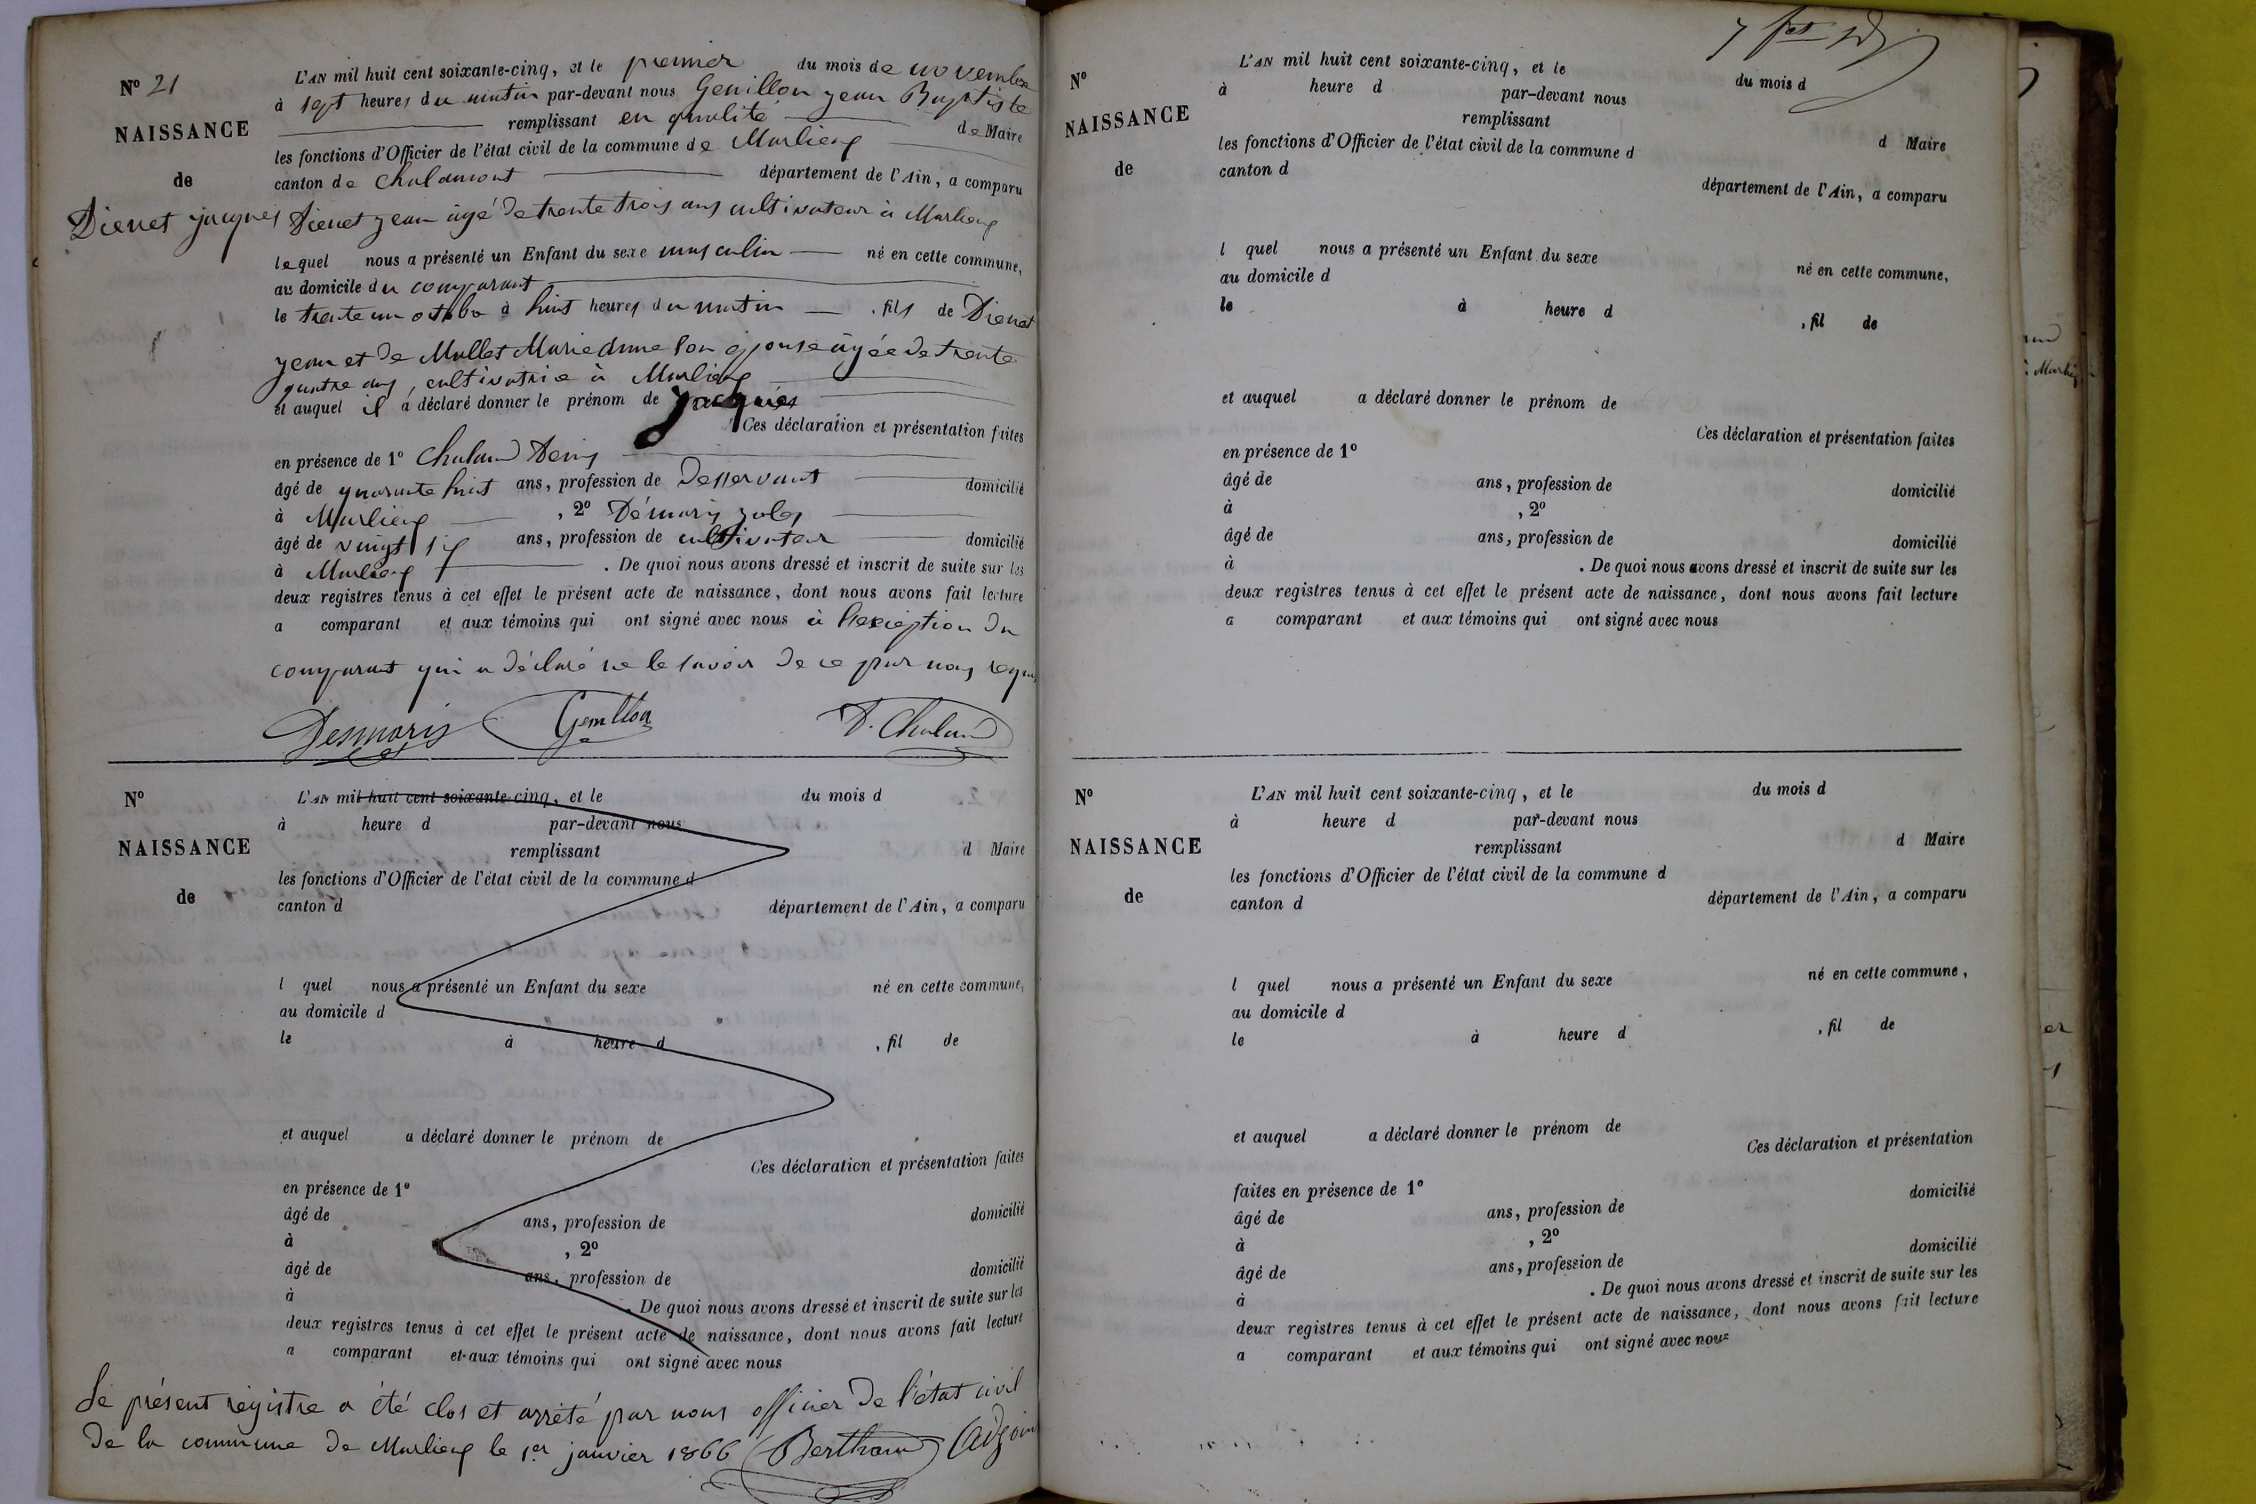 Nº 21
NAISSANCE
de
Dienet jacques
L'AN mil huit cent soixante-cinq, et le premier du mois de novembre
à sept heures du matin par-devant nous Genillon jean Baptiste
remplissant en qualité de Maire
les fonctions d'Officier de l'état civil de la commune de Marlieux
canton de chalamont département de l'Ain, a comparu
Dienet jean âgé de trente trois ans cultivateur à Marlieux
lequel nous a présenté un Enfant du sexe masculin né en cette commune,
au domicile du comparant
le trente un octobre à huit heures du matin , fils de Dienet
jean et de Mallet Marie son épouse âgée de trente
quatre ans, cultivatrice à Marlieux
et auquel il a déclaré donner le prénom de jacques
Ces déclaration et présentation faites
en présence de 1º Chaland Denis
âgé de quarante huit ans, profession de Desservant domicilié
à Marlieux , 2º Démaris jules
âgé de vingt six ans, profession de cultivateur domicilié
à Marlieux . De quoi nous avons dressé et inscrit de suite sur les
deux registres tenus à cet effet le présent acte de naissance, dont nous avons fait lecture
a comparant et aux témoins qui ont signé avec nous à l'exception du
comparant qui a déclaré ne le savoir de ce par nous requis
Desmaris Genillon D. Chaland
Nº
NAISSANCE
de
L'AN mil huit cent soixante-cinq, et le du mois d
à heure d par-devant nous
remplissant d Maire
les fonctions d'Officier de l'état civil de la commune d
canton d département de l'Ain, a comparu
l quel nous a présenté un Enfant du sexe né en cette commune,
au domicile d
le à heure d , fil de
et auquel a déclaré donner le prénom de
Ces déclaration et présentation faites
en présence de 1º
âgé de ans, profession de domicilié
à , 2º
âgé de ans, profession de domicilié
à . De quoi nous avons dressé et inscrit de suite sur les
deux registres tenus à cet effet le présent acte de naissance, dont nous avons fait lecture
a comparant et aux témoins qui ont signé avec nous
Le présent registre a été clos et arrêté par nous officier de l'état civil
de la commune de Marlieux le 1er janvier 1866 Berthaud Adjoint
Nº
NAISSANCE
de
L'AN mil huit cent soixante-cinq, et le du mois d
à heure d par-devant nous
remplissant d Maire
les fonctions d'Officier de l'état civil de la commune d
canton d département de l'Ain, a comparu
l quel nous a présenté un Enfant du sexe né en cette commune,
au domicile d
le à heure d , fil de
et auquel a déclaré donner le prénom de
Ces déclaration et présentation faites
en présence de 1º
âgé de ans, profession de domicilié
à , 2º
âgé de ans, profession de domicilié
à . De quoi nous avons dressé et inscrit de suite sur les
deux registres tenus à cet effet le présent acte de naissance, dont nous avons fait lecture
a comparant et aux témoins qui ont signé avec nous
Nº
NAISSANCE
de
L'AN mil huit cent soixante-cinq, et le du mois d
à heure d par-devant nous
remplissant d Maire
les fonctions d'Officier de l'état civil de la commune d
canton d département de l'Ain, a comparu
l quel nous a présenté un Enfant du sexe né en cette commune,
au domicile d
le à heure d , fil de
et auquel a déclaré donner le prénom de
Ces déclaration et présentation
faites en présence de 1º
âgé de ans, profession de domicilié
à , 2º
âgé de ans, profession de domicilié
à . De quoi nous avons dressé et inscrit de suite sur les
deux registres tenus à cet effet le présent acte de naissance, dont nous avons fait lecture
a comparant et aux témoins qui ont signé avec nous